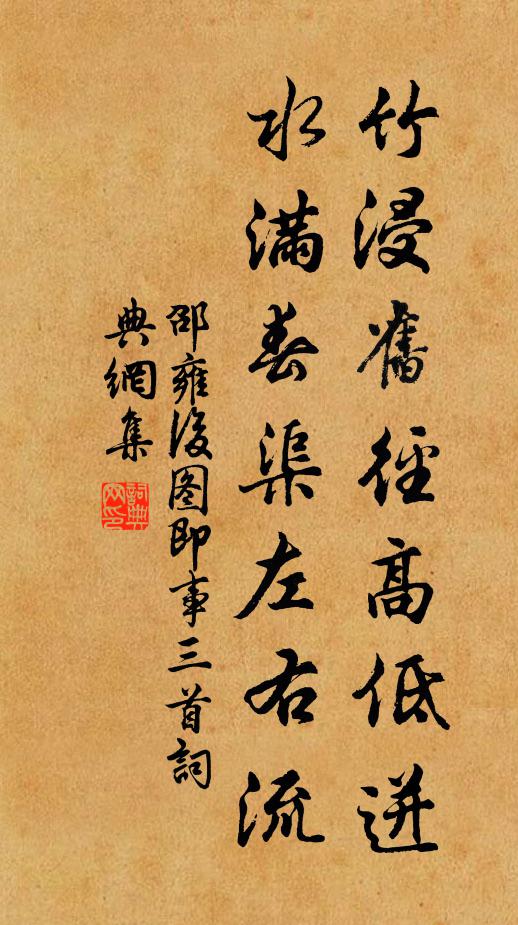 竹浸舊徑高低迸
水滿春渠左右流
邵雍後图即事三首詞
典網集
詞典网印